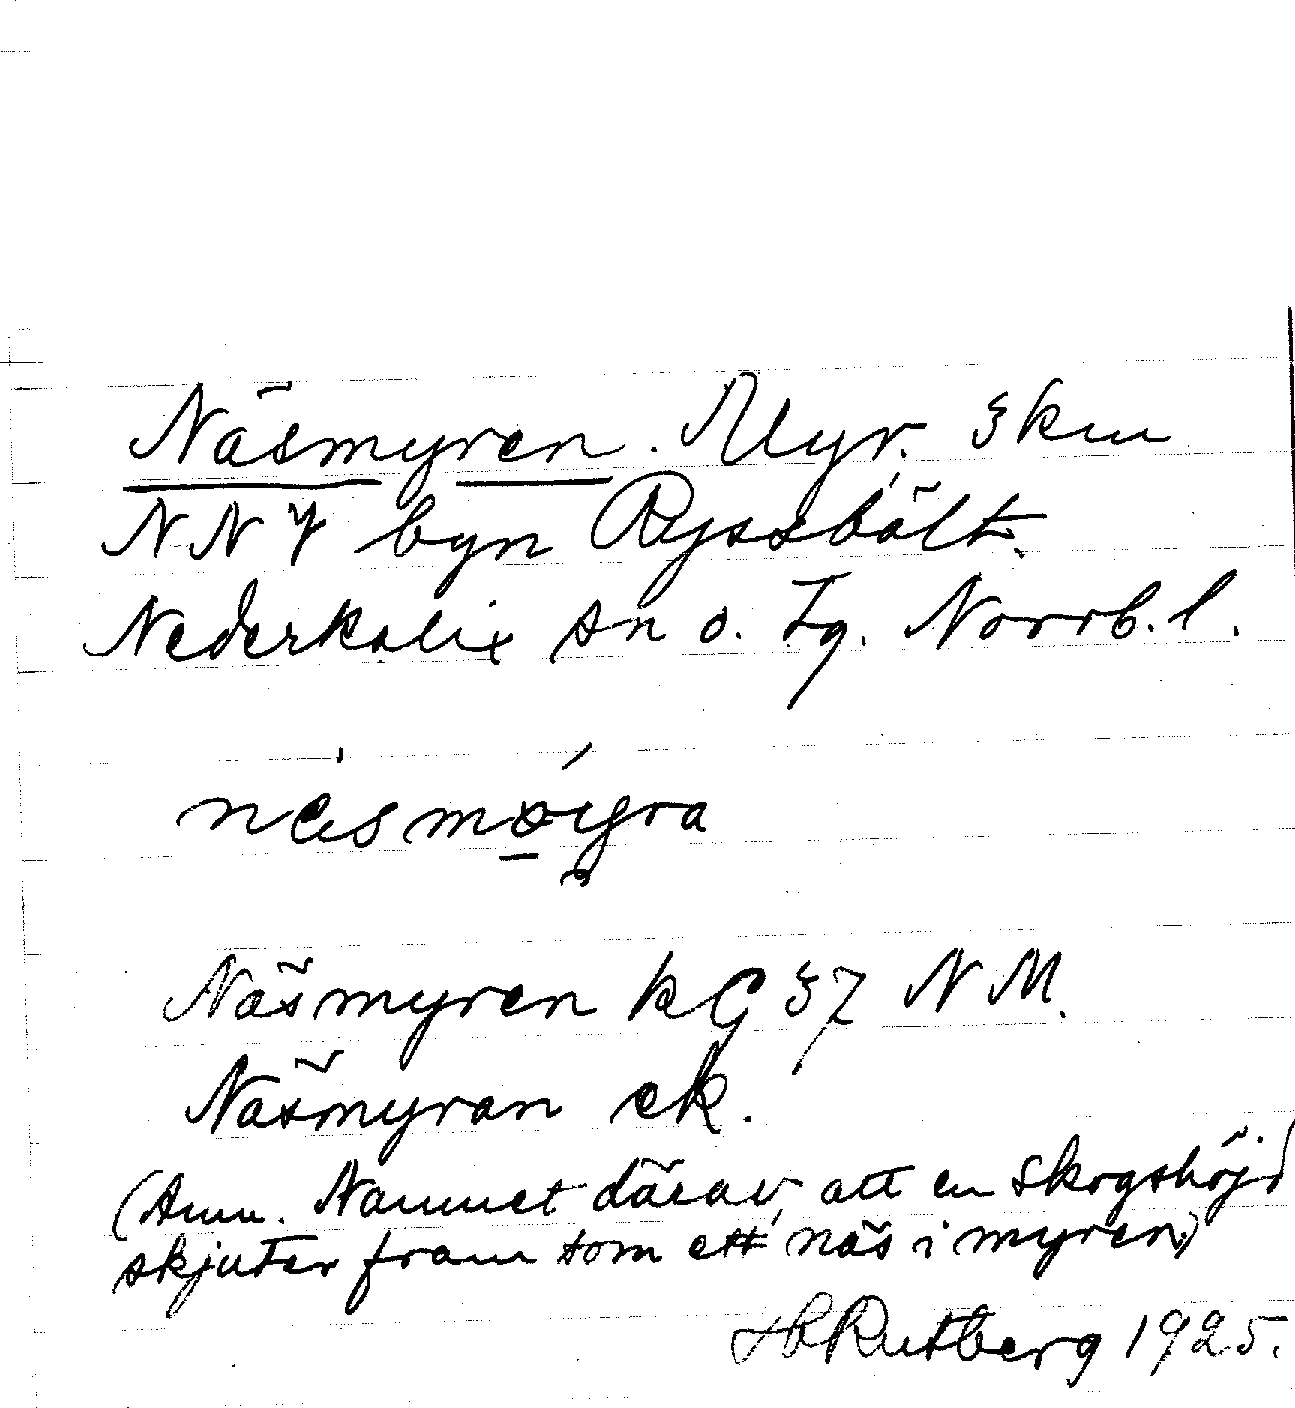 Näsmyren. Myr. 3 km
NNV byn Ryssbält.
Nederkalix sn o. tg. Norrb. l.
Näsmyren kG 37 NM.
Näsmyran ek.
(Anm. Namnet därav, att en skogshöjd
skjuter fram som ett näs i myren.)
H Rutberg 1925.